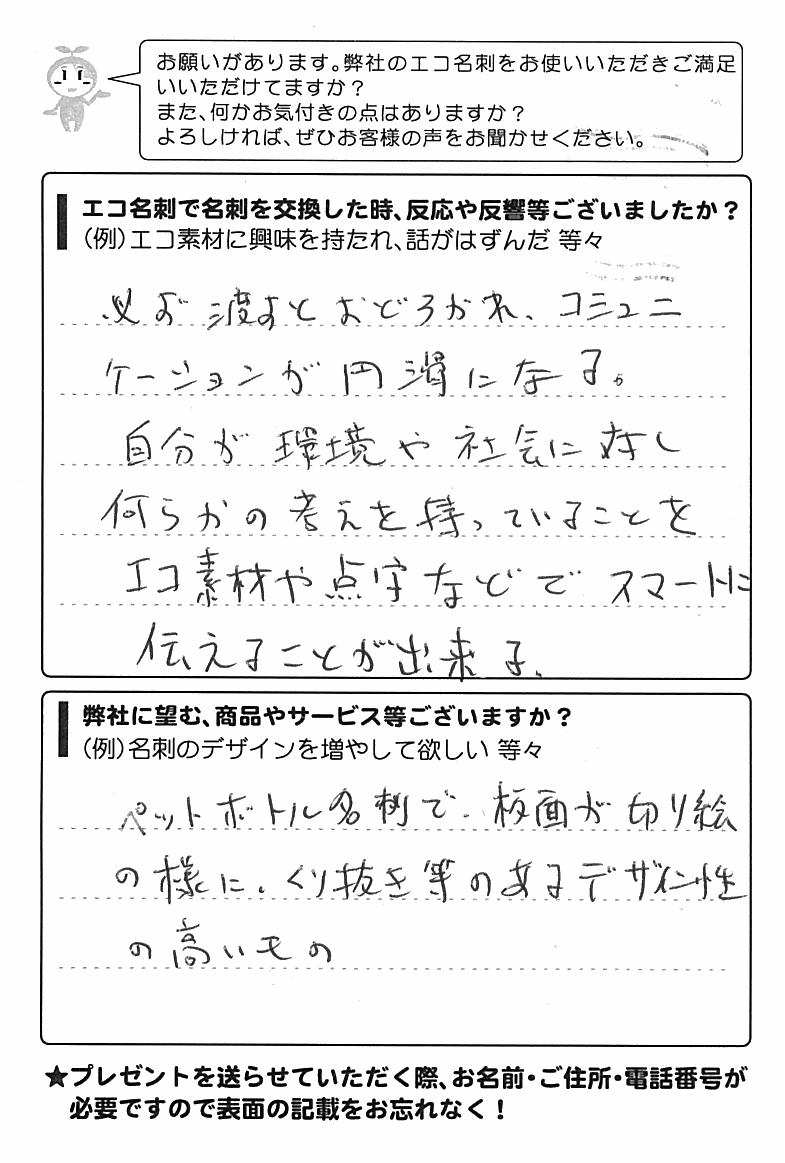 お願いがあります。弊社のエコ名刺をお使いいただきご満足
いいただけてますか？
また、何かお気付きの点はありますか？
よろしければ、ぜひお客様の声をお聞かせください。
エコ名刺で名刺を交換した時、反応や反響等ございましたか？
（例）エコ素材に興味を持たれ、話がはずんだ 等々
必ず渡すとおどろかれ、コミュニ
ケーションが円滑になる。
自分が環境や社会に対し
何らかの考えを持っていることを
エコ素材や点字などでスマートに
伝えることが出来る。
弊社に望む、商品やサービス等ございますか？
（例）名刺のデザインを増やして欲しい 等々
ペットボトル名刺で、板面が切り絵
の様に、くり抜き等のあるデザイン性
の高いもの
★プレゼントを送らせていただく際、お名前・ご住所・電話番号が
必要ですので表面の記載をお忘れなく！